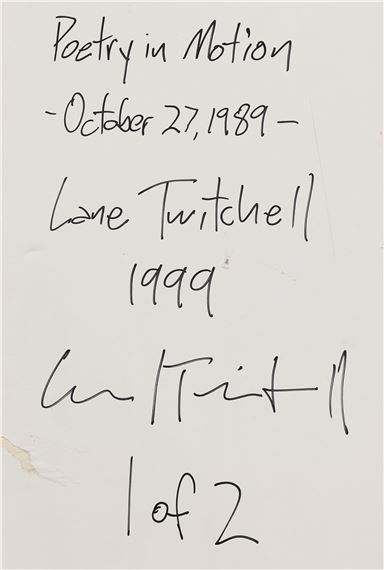 Poetry in Motion
- October 27, 1989 -
Lane Twitchell
1999
1 of 2